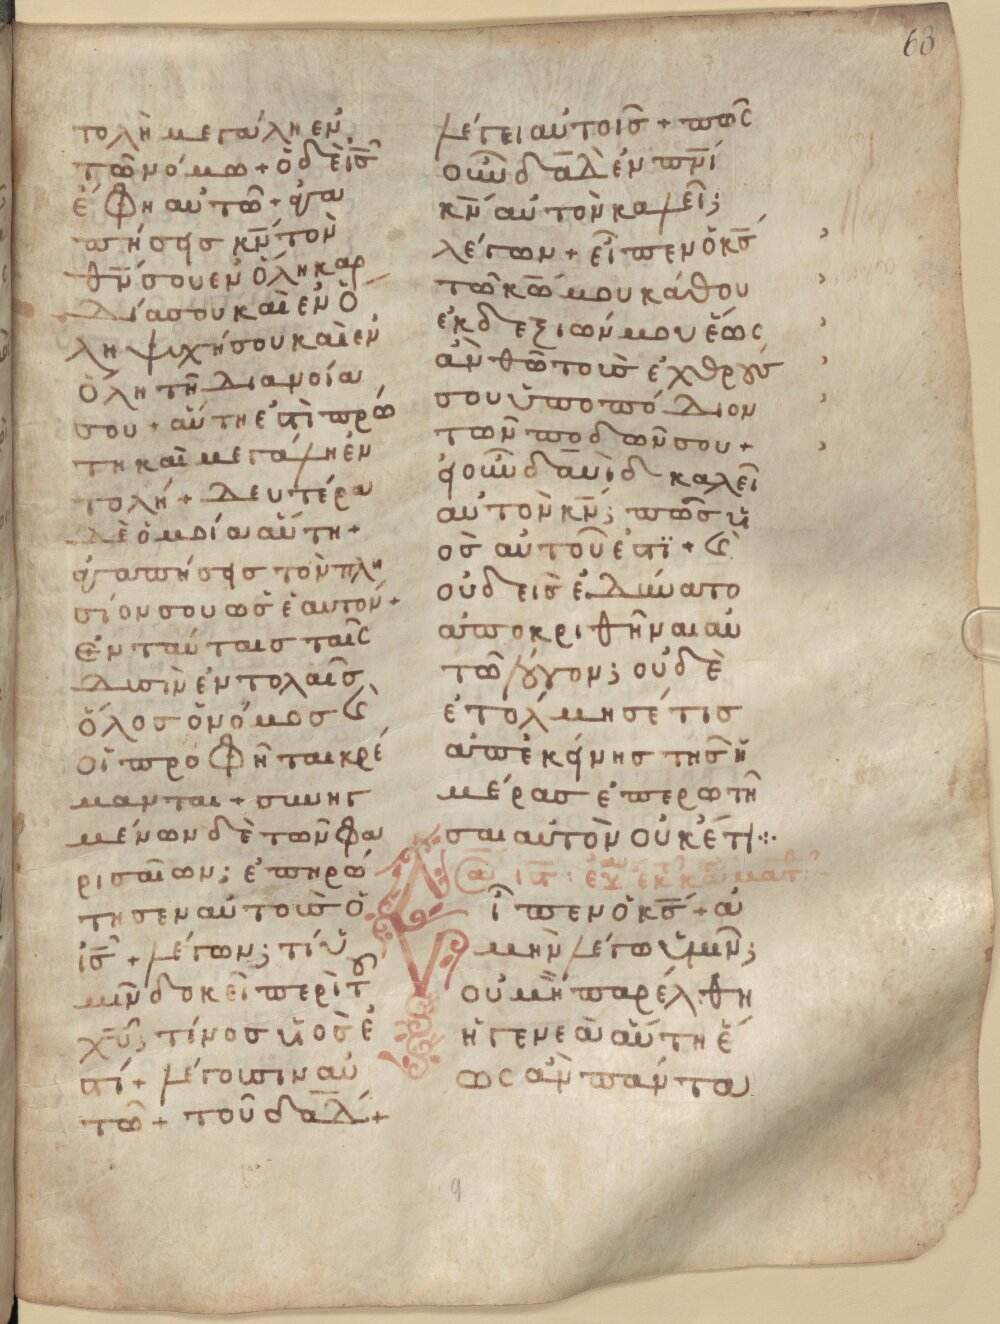 63
τολὴ μεγάλη ἐν
τῶ νόμω + ὁ δὲ ῑς̄
ἔφη αὐτῶ + ἀγα
πήσεις κ̄ν̄ τὸν
θ̄ν̄ σου ἐν ὅλη καρ
δία σου καὶ ἐν ὅ
λη ψυχή σου καὶ ἐν
ὅλη τῆ διανοία
σου + αὕτη ἐστὶ πρώ
τη καὶ μεγάλη ἐν
τολή + δευτέρα
δὲ ὁμοία αὕτη +
ἀγαπήσεις τὸν πλη
σίον σου ὡς ἑαυτόν +
Ἐν ταύταις ταῖς
δυσὶν ἐντολαῖς
ὅλος ὁ νόμος καὶ
οἱ προφῆται κρέ
μανται + συνηγ
μένων δὲ τῶν φα
ρισαίων; ἐπηρώ
τησεν αὐτοὺς ὁ
ῑς̄ + λέγων; τί ὑ
μῖν δοκεῖ περὶ τοῦ
χ̄ῡ; τίνος υἱός ἐ
στί + λέγουσιν αὐ
τῶ + τοῦ δ̄ᾱδ̄ +
λέγει αὐτοῖς + πῶς
οὖν δ̄ᾱδ̄ ἐν π̄ν̄ι
κ̄ν̄ αὐτὸν καλεῖ;
λέγων + εἶπεν ὁ κ̄ς̄
τῶ κ̄ω̄ μου κάθου
ἐκ δεξιῶν μου ἕως
ἂν θῶ τοὺς ἐχθρούς
σου ὑποπόδιον
τῶν ποδῶν σου +
εἰ οὖν δ̄ᾱυῒδ καλεῖ
αὐτὸν κ̄ν̄; πῶς υἱ
ὸς αὐτοῦ ἐστϊ + καὶ
οὐδεὶς ἐδύνατο
ἀποκριθῆναι αὐ
τῶ λόγον; οὐδὲ
ἐτόλμησέ τις
ἀπ' ἐκείνης τῆς ἡ
μέρας ἐπερωτῆ
σαι αὐτὸν οὐκέτι
Εἶπεν ὁ κ̄ς̄ + ἀ
μὴν λέγω ὑμῖν;
οὐ μὴ παρέλθη
ἡ γενεὰ αὕτη ἕ
ως ἂν πάντα
9